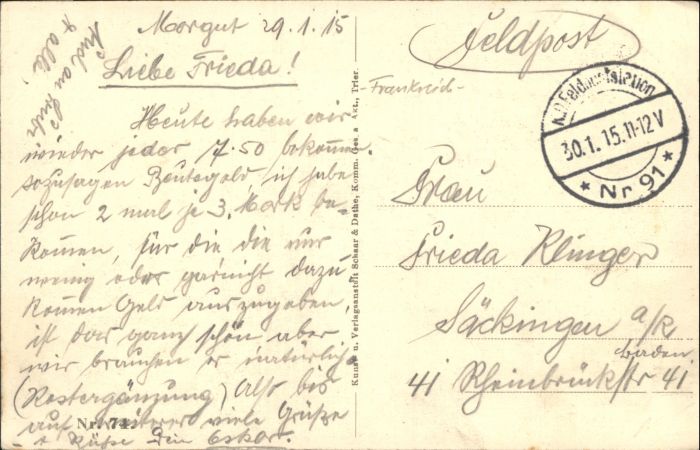 29.1.15
Liebe Frieda!
Heute haben wir
wieder jeder 7.50 bekommen
sozusagen Beutegeld, ich habe
schon 2 mal je 3. Mark be-
kommen, für die die nur
wenig oder garnicht dazu
kommen Geld auszugeben,
ist das ganz schön aber
wir brauchen es natürlich
also bis
auf weiteres viele Grüße
u Küsse Dein Oskar.
Nr. 74.
Kunst u. Verlagsanstalt Schaar & Dathe, Komm. Ges. a Akt., Trier.
Feldpost
Frankreich-
K.D. Feldpoststation
30.1.15.11-12V
* Nr 91 *
Frau
Frieda Klinger
Säckingen a/R.
Baden
41 Rheinbrückstr 41